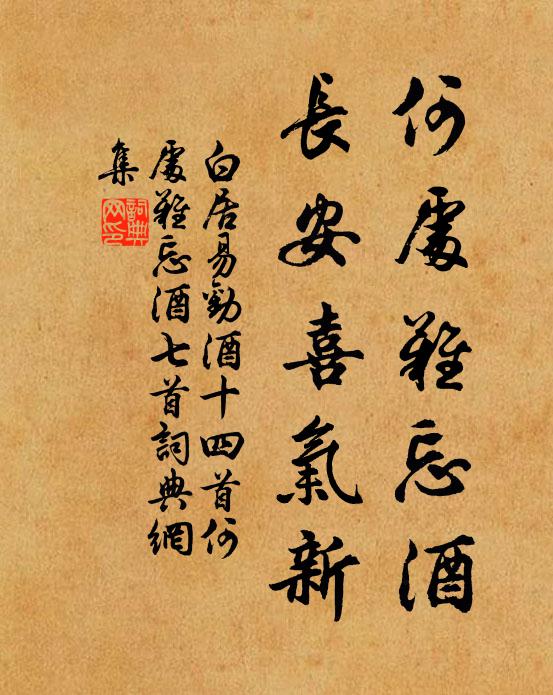 何處難忘酒
長安喜氣新
白居易勸酒十四首何
處難忘酒七首詞典網
集
詞典
网印